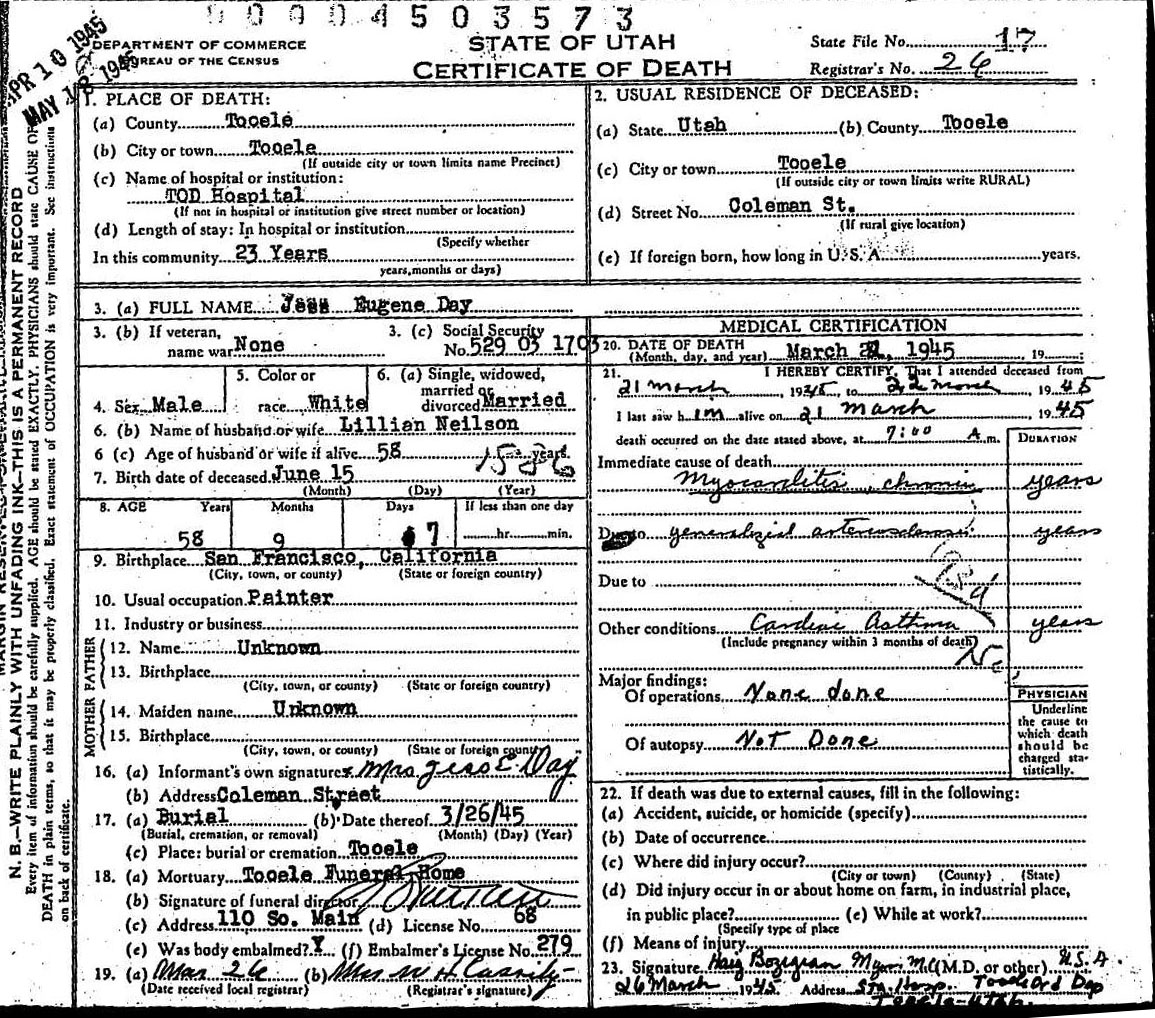 00904503573
APR 10 1945
MAY 18 1945
DEPARTMENT OF COMMERCE
BUREAU OF THE CENSUS
STATE OF UTAH
CERTIFICATE OF DEATH
State File No. 17
Registrar's No. 26
N. B.—WRITE PLAINLY WITH UNFADING INK—THIS IS A PERMANENT RECORD
Every item of information should be carefully supplied. AGE should be stated EXACTLY. PHYSICIANS should state CAUSE OF
DEATH in plain terms, so that it may be properly classified. Exact statement of OCCUPATION is very important. See instructions
on back of certificate.
1. PLACE OF DEATH:
(a) County Tooele
(b) City or town Tooele
(If outside city or town limits name Precinct)
(c) Name of hospital or institution:
TOD Hospital
(If not in hospital or institution give street number or location)
(d) Length of stay: In hospital or institution
(Specify whether
In this community 23 Years
years, months or days)
2. USUAL RESIDENCE OF DECEASED:
(a) State Utah (b) County Tooele
(c) City or town Tooele
(If outside city or town limits write RURAL)
(d) Street No. Coleman St.
(If rural give location)
(e) If foreign born, how long in U. S. A. years.
3. (a) FULL NAME Jess Eugene Day
3. (b) If veteran, name war None
3. (c) Social Security No. 529 03 1703
4. Sex Male
5. Color or race White
6. (a) Single, widowed, married or divorced Married
6. (b) Name of husband or wife Lillian Neilson
6 (c) Age of husband or wife if alive 58 years
7. Birth date of deceased June 15 1586
(Month) (Day) (Year)
8. AGE Years Months Days If less than one day
58 9 7 hr. min.
9. Birthplace San Francisco, California
(City, town, or county) (State or foreign country)
10. Usual occupation Painter
11. Industry or business
FATHER
12. Name Unknown
13. Birthplace
(City, town, or county) (State or foreign country)
MOTHER
14. Maiden name Unknown
15. Birthplace
(City, town, or county) (State or foreign country)
16. (a) Informant's own signature x Mrs Jess E. Day
(b) Address Coleman Street
17. (a) Burial (b) Date thereof 3/26/45
(Burial, cremation, or removal) (Month) (Day) (Year)
(c) Place: burial or cremation Tooele
18. (a) Mortuary Tooele Funeral Home
(b) Signature of funeral director
(c) Address 110 So. Main (d) License No. 68
(e) Was body embalmed? Y (f) Embalmer's License No. 279
19. (a) Mar 26 (b) Mrs W H Cassity
(Date received local registrar) (Registrar's signature)
MEDICAL CERTIFICATION
20. DATE OF DEATH
(Month, day, and year) March 22, 1945, 19
21. I HEREBY CERTIFY, That I attended deceased from
21 March, 1945, to 22 March, 1945
I last saw him alive on 21 March 1945
death occurred on the date stated above, at 7:00 A m.
DURATION
Immediate cause of death
Myocarditis, chronic years
Due to generalized arteriosclerosis years
Due to
Other conditions Cardiac Asthma years
(Include pregnancy within 3 months of death)
Major findings:
Of operations None done
Of autopsy Not Done
PHYSICIAN
Underline
the cause to
which death
should be
charged sta-
tistically.
22. If death was due to external causes, fill in the following:
(a) Accident, suicide, or homicide (specify)
(b) Date of occurrence
(c) Where did injury occur?
(City or town) (County) (State)
(d) Did injury occur in or about home on farm, in industrial place,
in public place? (e) While at work?
(Specify type of place
(f) Means of injury
23. Signature Haig Bozigian M.C. (M.D. or other) U.S.A.
26 March 1945 Address Sta. Hosp. Tooele Ord Dep
Tooele-Utah.